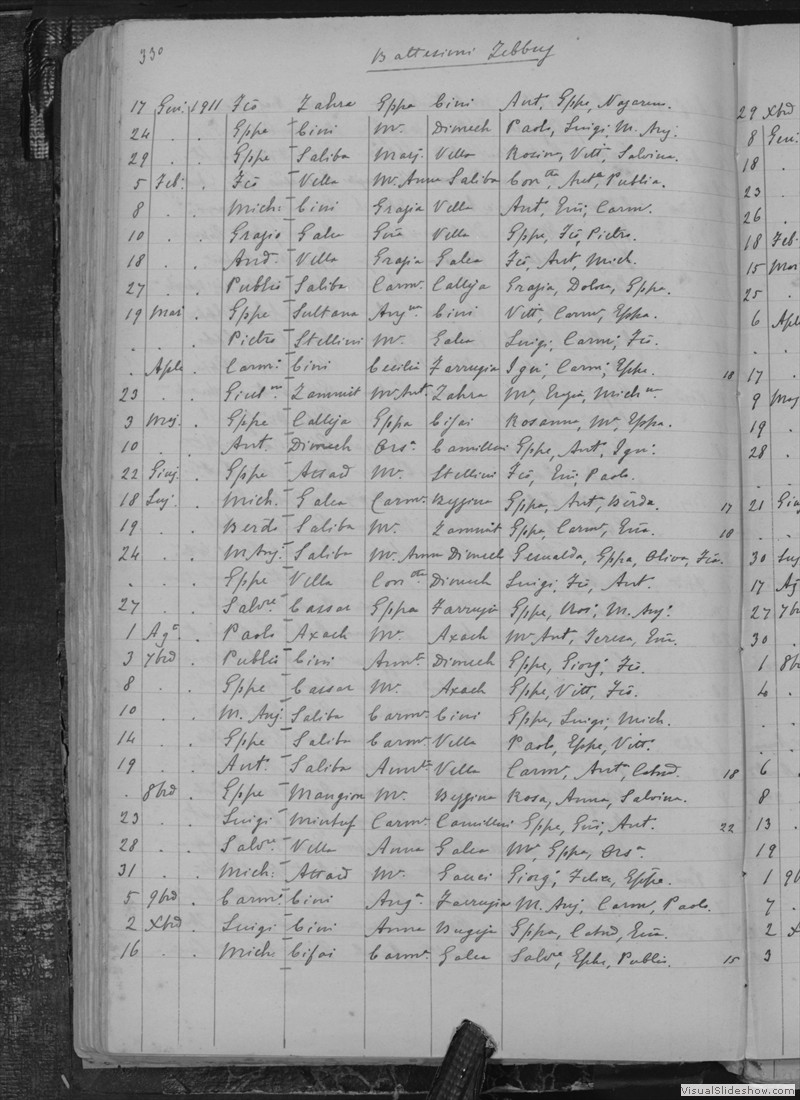 330 Battesimi Zebbug
17 Gen. 1911 Fcõ Zahra Gppa Cini Ant, Gppe, Nazaren.
24 . . Gppe Cini Mª Dimech Paolo, Luigi, M. Ang.
29 . . Gppe Saliba Marj. Vella Rosina, Vitt, Salvina.
5 Feb. . Fcõ Vella Mª Anna Saliba Con.tta, Ant.a, Publia.
8 . . Mich. Cini Grazia Vella Ant, Em, Carm.
10 . . Grazio Galea Vella Gppe, Fcõ, Pietro.
18 . . And. Vella Grazia Galea Fcõ, Ant, Mich.
27 . . Publio Saliba Carm. Calleja Grazia, Dolor, Gppa.
19 Mar. . Gppe Sultana Ang.na Cini Vitt, Carm, Gppa.
. . . Pietro Stellini Mª Galea Luigi, Carm, Fcõ.
. Aple . Carm. Cini Cecilia Farrugia Ign, Carm, Gppe.
23 . . Giul.no Zammit Mª Ant. Zahra Mª, Mich.na
3 Maj. . Gppe Calleja Gppa Cifai Rosanna, Mª, Gppa.
10 . . Ant. Dimech Ors.a Camilleri Gppe, Ant, Ign.
22 Giug . Gppe Attard Mª Stellini Fcõ, Em, Paolo.
18 Lug. . Mich. Galea Carm. Beggina Gppa, Ant, Berda.
19 . . Berdo Saliba Mª Zammit Gppa, Carm, Em.
24 . . M. Ang. Saliba Mª Anna Dimech Gesualda, Gppa, Oliva, Fcã.
. . . Gppe Vella Con.tta Dimech Luigi, Fcõ, Ant.
27 . . Salv.re Cassar Gppa Farrugia Gppe, Ros, M. Ang.
1 Ag.o . Paolo Axach Mª Axach Mª Ant, Teresa, Em.
3 7brd . Publio Cini Ann.ta Dimech Gppe, Giorg, Fcõ.
8 . . Gppe Cassar Mª Axach Gppe, Vitt, Fcõ.
10 . . M. Ang. Saliba Carm. Cini Gppe, Luigi, Mich.
14 . . Gppe Saliba Carm. Vella Paolo, Gppe, Vitt.
19 . . Ant. Saliba Ann.ta Vella Carm, Ant, Catnd.
. 8brd . Gppe Mangion Mª Beggina Rosa, Anna, Salvina.
23 . . Luigi Mintuf Carm. Camilleri Gppe, Em, Ant.
28 . . Salv.re Vella Anna Galea Mª, Gppa, Ors.a
31 . . Mich. Attard Mª Gauci Giorg, Felice, Gppe.
5 9brd . Carm. Cini Ang.a Farrugia M. Ang, Carm, Paolo.
2 Xbrd . Luigi Cini Anna Bugeja Gppa, Catnd, Em.
16 . . Mich. Cifai Carm. Galea Salv.re, Gppe, Publio.
29 Xbrd
8 Gen.
18 .
23 .
26 .
18 Feb.
15 Mar
25 .
6 Aple
. .
18 17 .
9 Maj
19 .
28 .
. .
17 21 Giu
10 . .
30 Lug
17 Ag
27 7br
30 .
1 8b
4 .
. .
. .
18 6 .
8 .
22 13 .
19
1 9b
7 .
2 X
15 3
VisualSlideshow.com